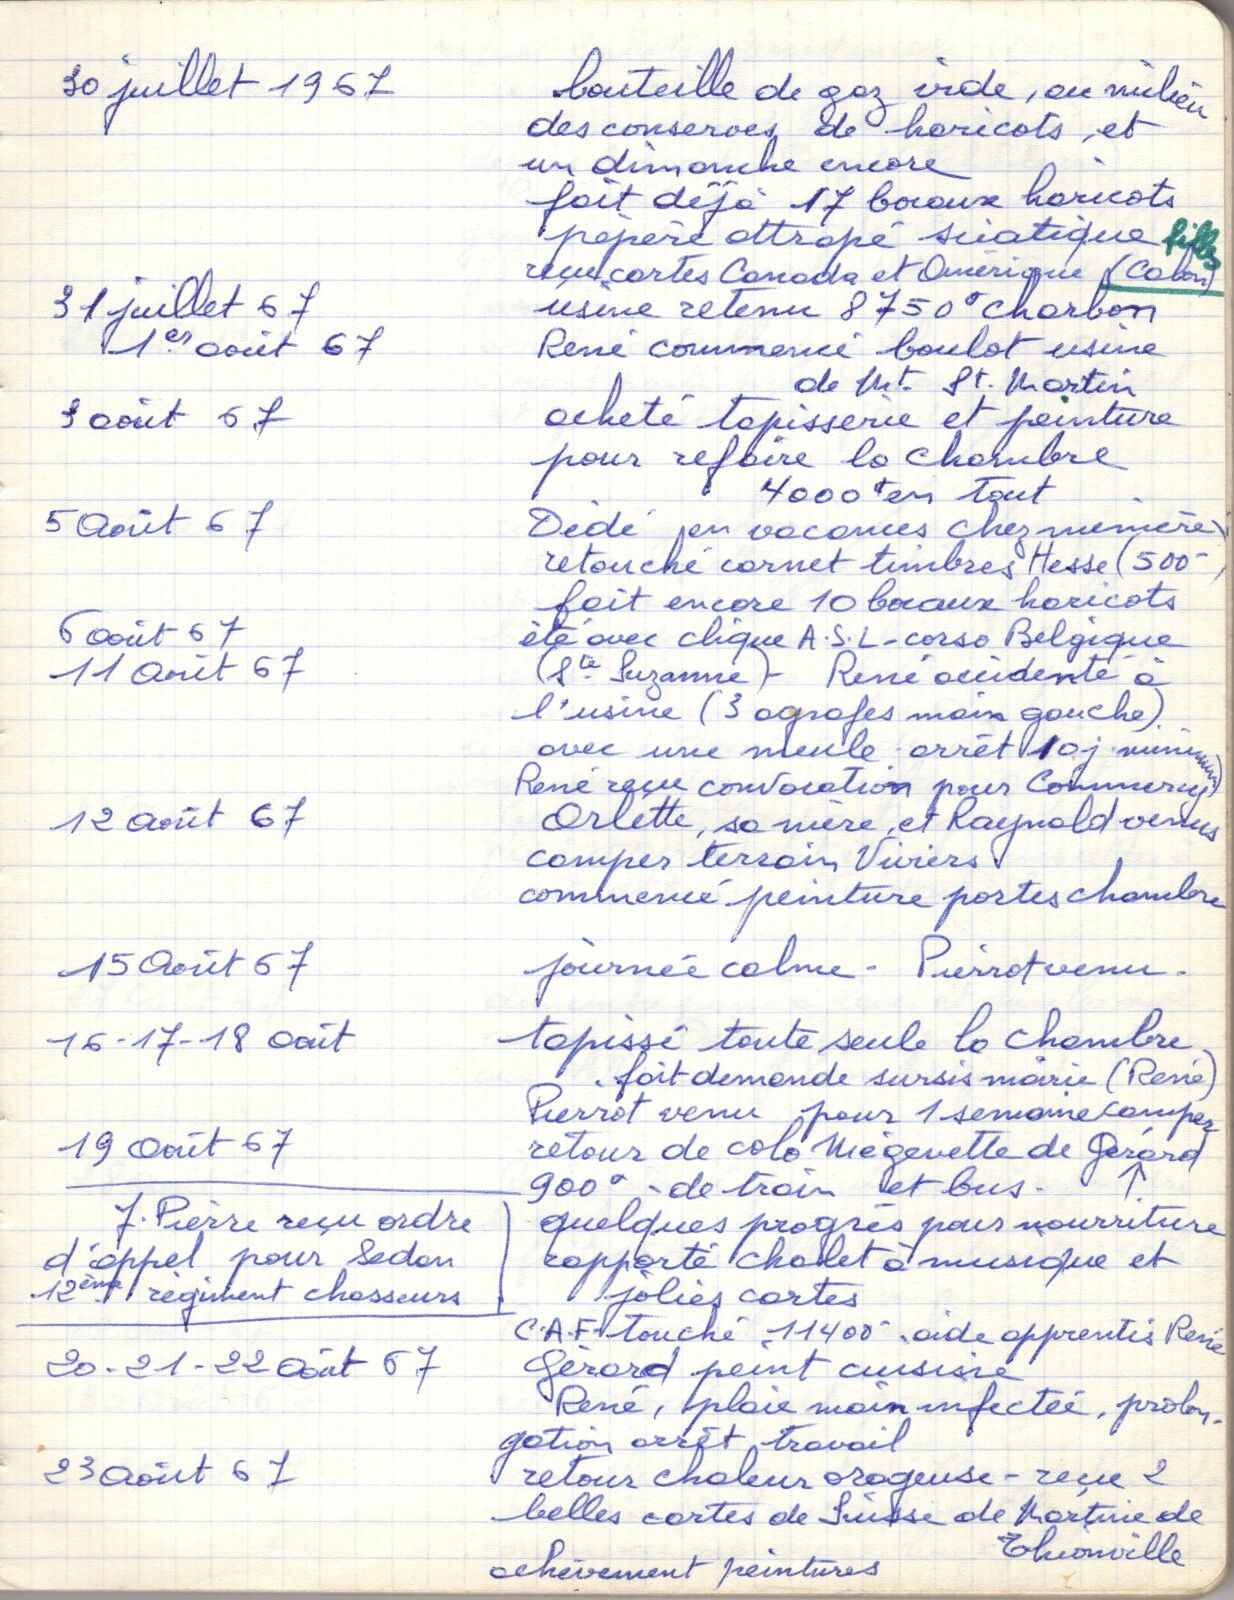 30 juillet 1967 bouteille de gaz vide, au milieu
des conserves de haricots, et
un dimanche encore
fait déjà 17 bocaux haricots
pépère attrapé sciatique filles
reçu cartes Canada et Amérique (Cabon)
31 juillet 67 usine retenu 8750° charbon
1er août 67 René commencé boulot usine
de Mt. St. Martin
3 août 67 acheté tapisserie et peinture
pour refaire la chambre
4000 en tout
5 Août 67 Dédé en vacances chez mémère
retouché carnet timbres Hesse (500-)
fait encore 10 bocaux haricots
6 août 67 été avec clique A.S.L-corso Belgique
11 Août 67 (Ste Suzanne) - René accidenté à
l'usine (3 agrafes main gauche)
avec une meule. arrêt 10j minimum)
René reçu convocation pour Commercy
12 août 67 Arlette, sa mère, et Raynald venus
camper terrain Viviers
commencé peinture portes chambre
15 Août 67 journée calme - Pierrot venu -
16-17-18 août tapissé toute seule la chambre.
. fait demande sursis mairie (René)
Pierrot venu pour 1 semaine camper
19 Août 67 retour de colo Mégevette de Gérard
900° - de train et bus - ↑
7. Pierre reçu ordre quelques progrès pour nourriture
d'appel pour Sedan rapporté chalet à musique et
12ème régiment chasseurs jolies cartes
C.A.F. touché 11400- aide apprentis René
20-21-22 Août 67 Gérard peint cuisine
René, plaie main infectée, prolon-
gation arrêt travail
23 Août 67 retour chaleur orageuse - reçu 2
belles cartes de Suisse de Martine de
Thionville
achèvement peintures